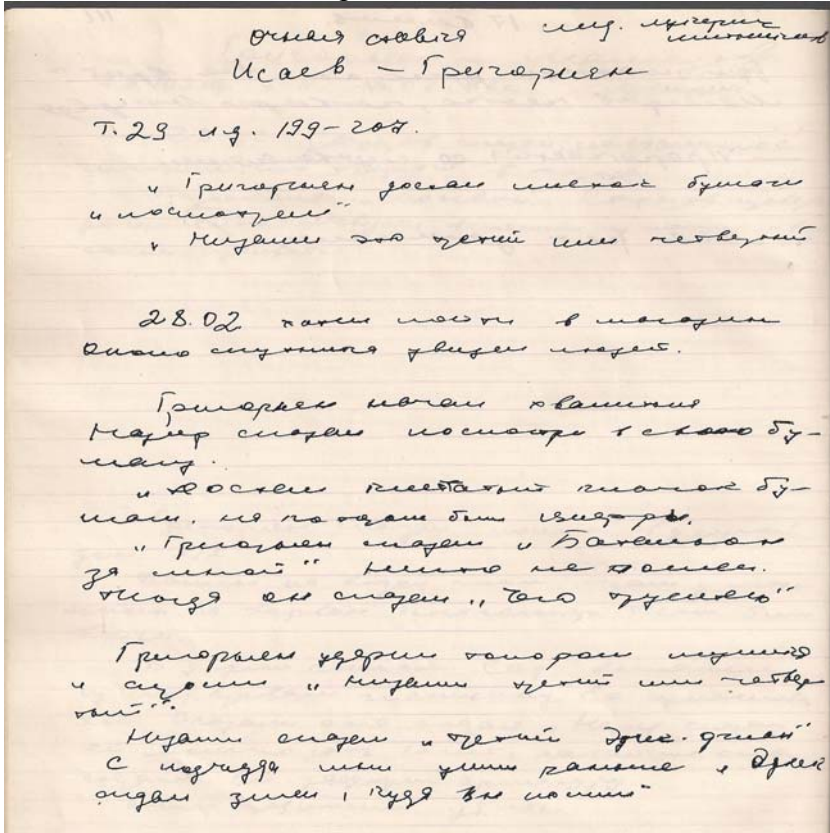 очная ставка
Исаев – Григорян
Т. 29 л.д. 199–207.
„ Григорян достал листок бумаги
и посмотрел“
„ Низами это третий или четвертый
28.02 хотел пойти в магазин
около спутника увидел людей.
Григорян начал хвалиться
сказал посмотри в свою бу-
магу.
„ Достал клочок бу-
маги, на котором были цифры.
„ Григорян сказал „
за мной“ никто не пошел.
тогда он сказал „
Григорян ударил топором мужчину
и спросил „ Низами третий или четвер
тый“.
Низами сказал „ третий
С подъезда мы ушли раньше, Эдик
знал, куда он пошли“